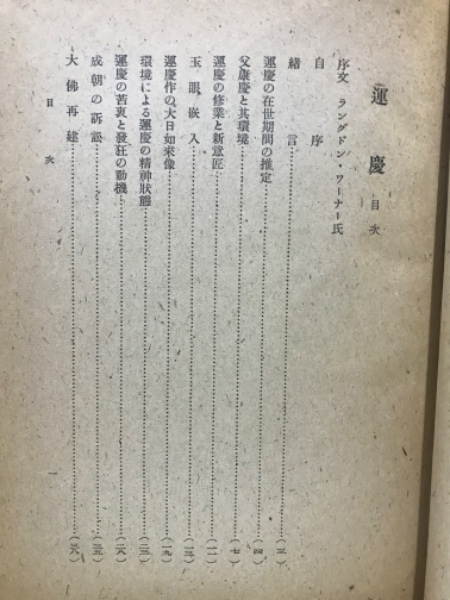 運慶 目次
序文 ラングドン・ワーナー氏
自序
緒言……(三)
運慶の在世期間の推定……(四)
父康慶と其環境……(七)
運慶の修業と新意匠……(一一)
玉眼嵌入……(一三)
運慶作の大日如来像……(一九)
環境による運慶の精神狀態……(二三)
運慶の苦衷と發狂の動機……(二八)
成朝の訴訟……(三五)
大佛再建……(三八)
目次 一